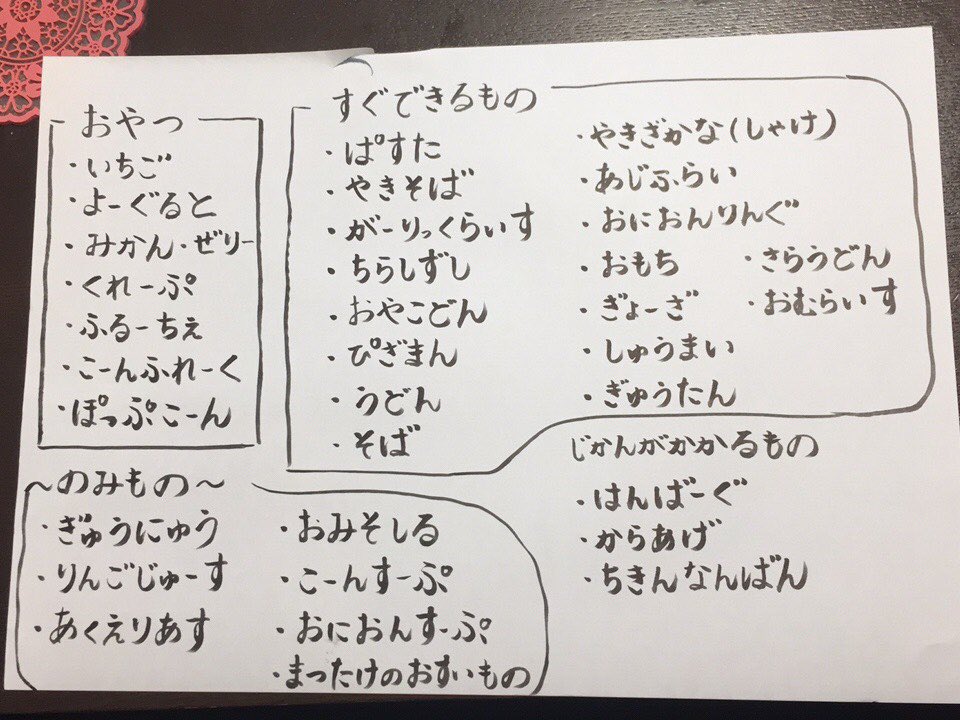 おやつ
・いちご
・よーぐると
・みかん・ぜりー
・くれーぷ
・ふるーちぇ
・こーんふれーく
・ぽっぷこーん
すぐできるもの
・ぱすた
・やきそば
・がーりっくらいす
・ちらしずし
・おやこどん
・ぴざまん
・うどん
・そば
・やきざかな(しゃけ)
・あじふらい
・おにおんりんぐ
・おもち
・ぎょーざ
・しゅうまい
・ぎゅうたん
・さらうどん
・おむらいす
じかんがかかるもの
・はんばーぐ
・からあげ
・ちきんなんばん
〜のみもの〜
・ぎゅうにゅう
・りんごじゅーす
・あくえりあす
・おみそしる
・こーんすーぷ
・おにおんすーぷ
・まったけのおすいもの